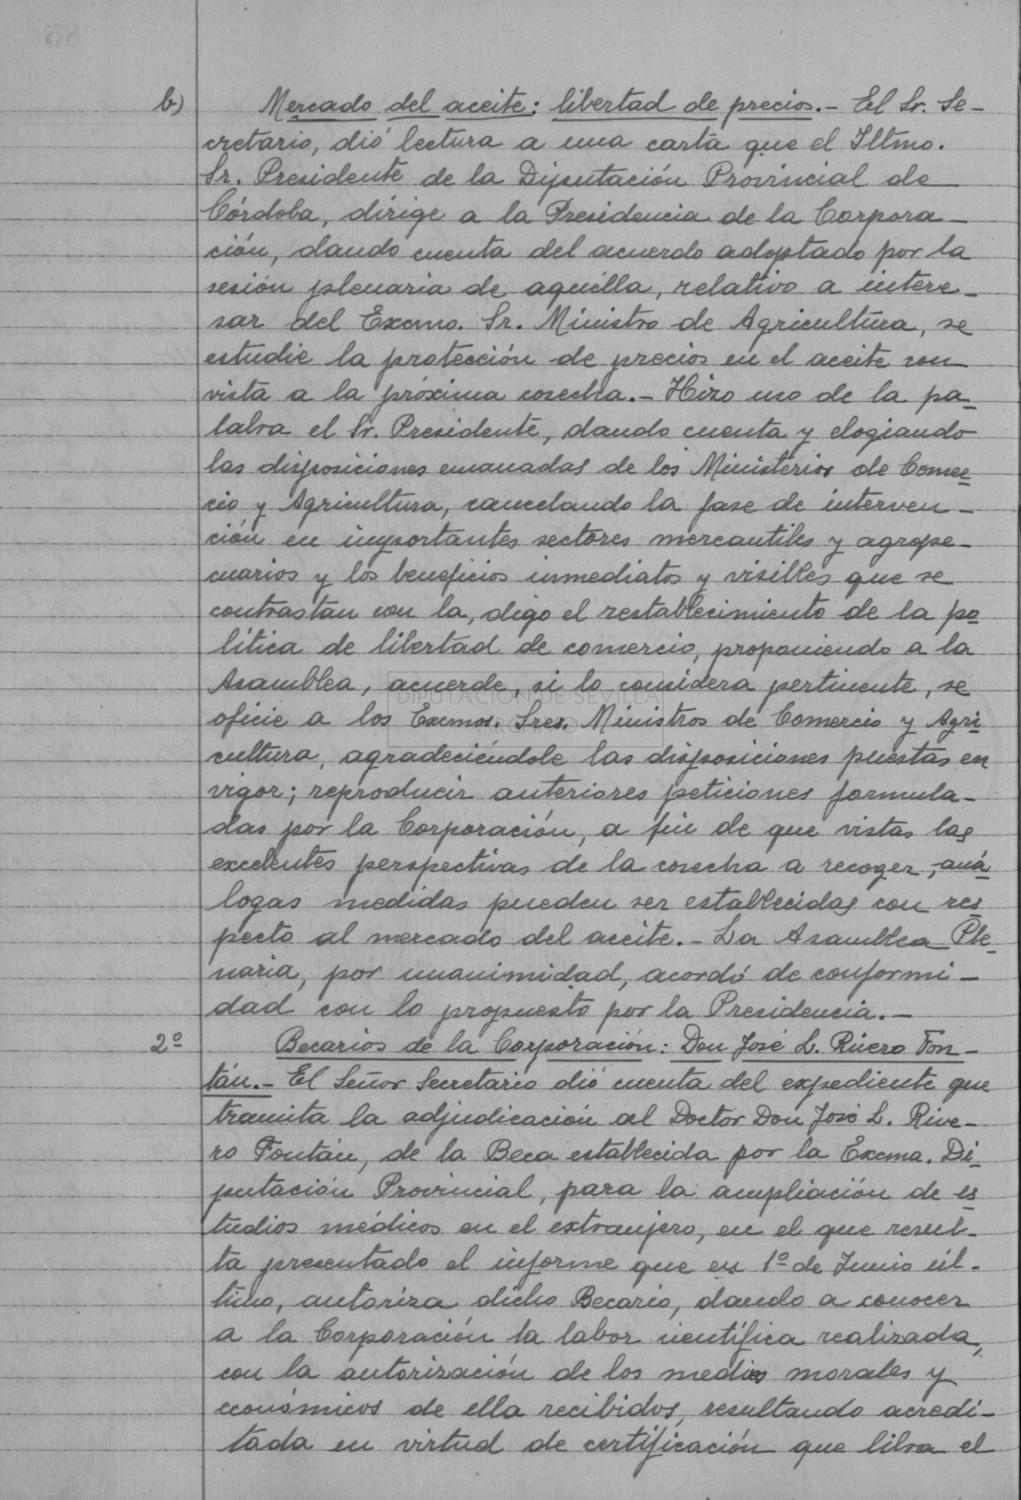 b) Mercado del aceite: libertad de precios.- El Sr. Se-
cretario, dió lectura a una carta que el Iltmo.
Sr. Presidente de la Diputación Provincial de
Córdoba, dirige a la Presidencia de la Corpora-
ción, dando cuenta del acuerdo adoptado por la
sesión plenaria de aquélla, relativo a intere-
sar del Excmo. Sr. Ministro de Agricultura, se
estudie la protección de precios en el aceite con
vista a la próxima cosecha.- Hizo uso de la pa-
labra el Sr. Presidente, dando cuenta y elogiando
las disposiciones emanadas de los Ministerios de Comer-
cio y Agricultura, cancelando la fase de interven-
ción en importantes sectores mercantiles y agrope-
cuarios y los beneficios inmediatos y visibles que se
contrastan con la, digo el restablecimiento de la po-
lítica de libertad de comercio, proponiendo a la
Asamblea, acuerde, si lo considera pertinente, se
DIPUTACION DE SEVILLA
oficie a los Excmos. Sres. Ministros de Comercio y Agri-
cultura, agradeciéndole las disposiciones puestas en
vigor; reproducir anteriores peticiones formula-
das por la Corporación, a fin de que vistas las
excelentes perspectivas de la cosecha a recoger, aná-
logas medidas pueden ser establecidas con res-
pecto al mercado del aceite.- La Asamblea Ple-
naria, por unanimidad, acordó de conformi-
dad con lo propuesto por la Presidencia.-
2º Becarios de la Corporación: Don José L. Rivero Fon-
tán.- El Señor Secretario dió cuenta del expediente que
tramita la adjudicación al Doctor Don José L. Rive-
ro Fontán, de la Beca establecida por la Excma. Di-
putación Provincial, para la ampliación de es-
tudios médicos en el extranjero, en el que resul-
ta presentado el informe que en 1º de Junio úl-
timo, autoriza dicho Becario, dando a conocer
a la Corporación la labor científica realizada,
con la autorización de los medios morales y
económicos de ella recibidos, resultando acredi-
tada en virtud de certificación que libra el